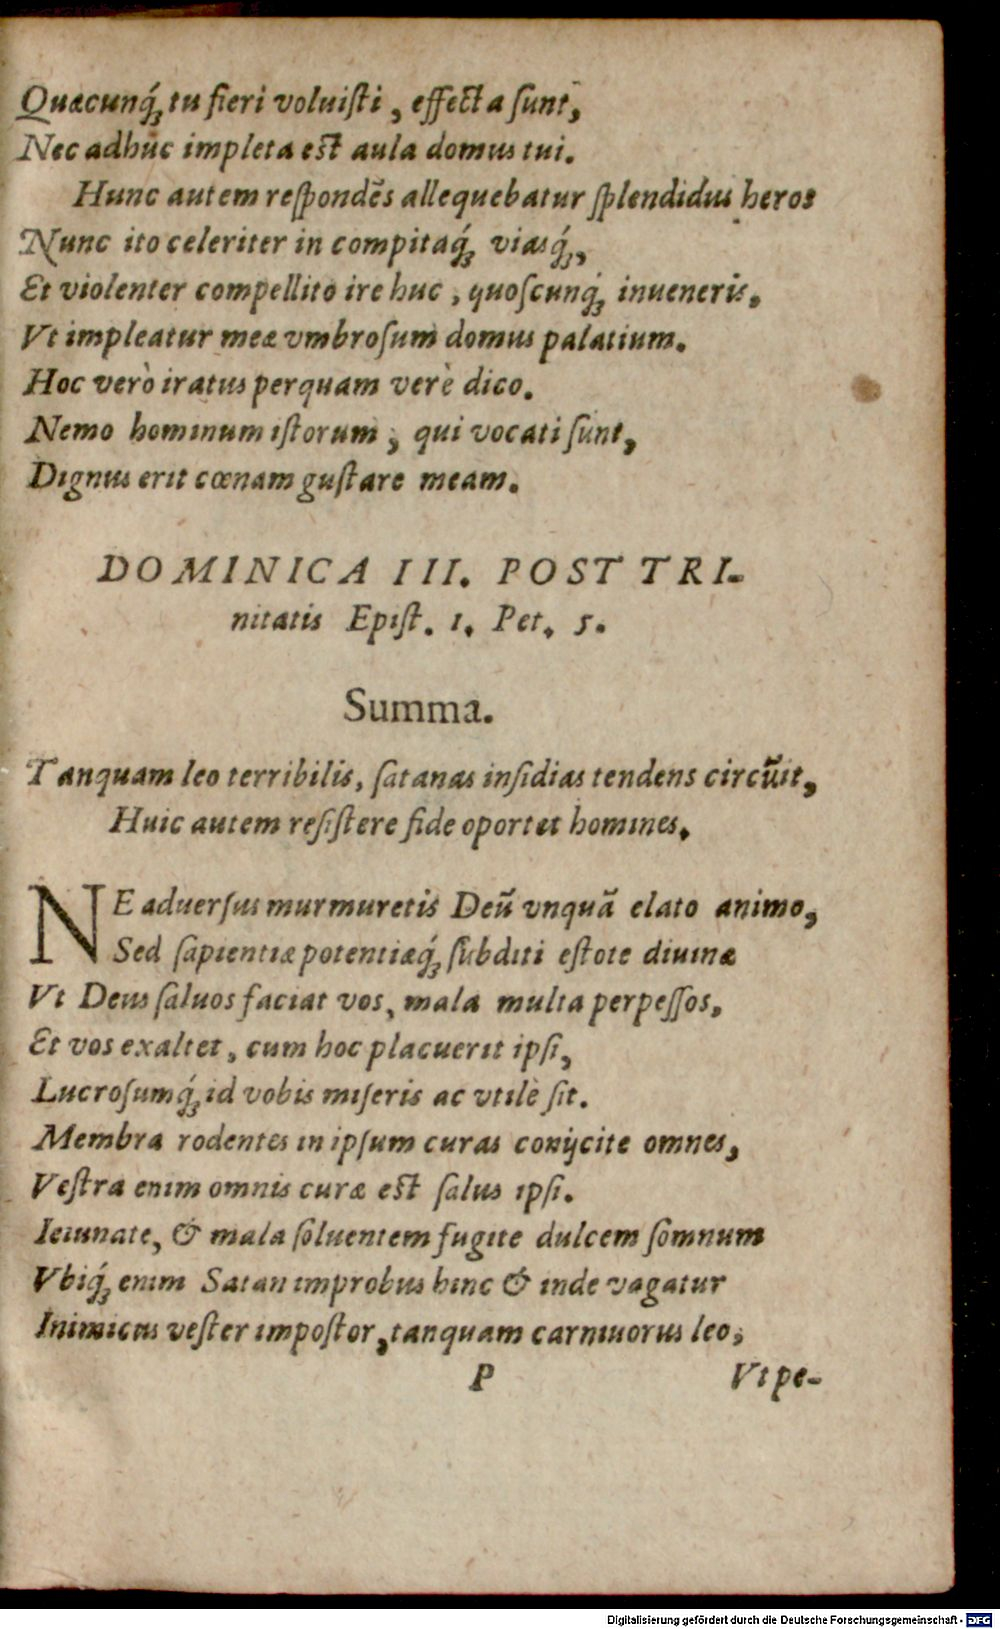 Quæcunq́ꝫ tu fieri voluiſti, effecta ſunt,
Nec adhuc impleta est aula domus tui.
Hunc autem reſpondẽs allequebatur ſplendidus heros
Nunc ito celeriter in compitaq́ꝫ viasq́ꝫ,
Et violenter compellito ire huc, quoſcunq́ꝫ inueneris.
Vt impleatur meæ vmbroſum domus palatium.
Hoc verò iratus perquam verè dico.
Nemo hominum iſtorum, qui vocati ſunt,
Dignus erit cœnam guſtare meam.
DOMINICA III. POST TRI-
nitatis Epiſt. 1. Pet. 5.
Summa.
Tanquam leo terribilis, ſatanas inſidias tendens circũit,
Huic autem reſiſtere fide oportet homines.
NE aduerſus murmuretis Deũ vnquã elato animo,
Sed ſapientiæ potentiæq́ꝫ ſubditi eſtote diuinæ
Vt Deus ſaluos faciat vos, mala multa perpeſſos,
Et vos exaltet, cum hoc placuerit ipſi,
Lucroſumq́ꝫ id vobis miſeris ac vtile ſit.
Membra rodentes in ipſum curas conijcite omnes,
Veſtra enim omnis curæ est ſalus ipſi.
Ieiunate, & mala ſoluentem fugite dulcem ſomnum
Vbiq́ꝫ enim Satan improbus hinc & inde vagatur
Inimicus veſter impoſtor, tanquam carniuorus leo,
P Vt pe-
Digitalisierung gefördert durch die Deutsche Forschungsgemeinschaft - DFG